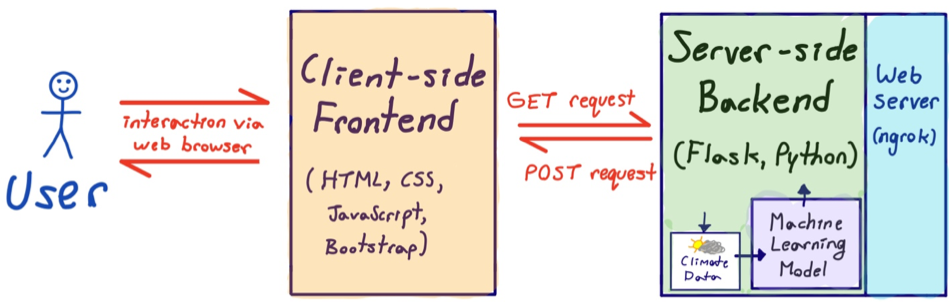 User
interaction via
web browser
Client-side
Frontend
(HTML, CSS,
JavaScript,
Bootstrap)
GET request
POST request
Server-side
Backend
(Flask, Python)
Climate
Data
Machine
Learning
Model
Web
Server
(ngrok)